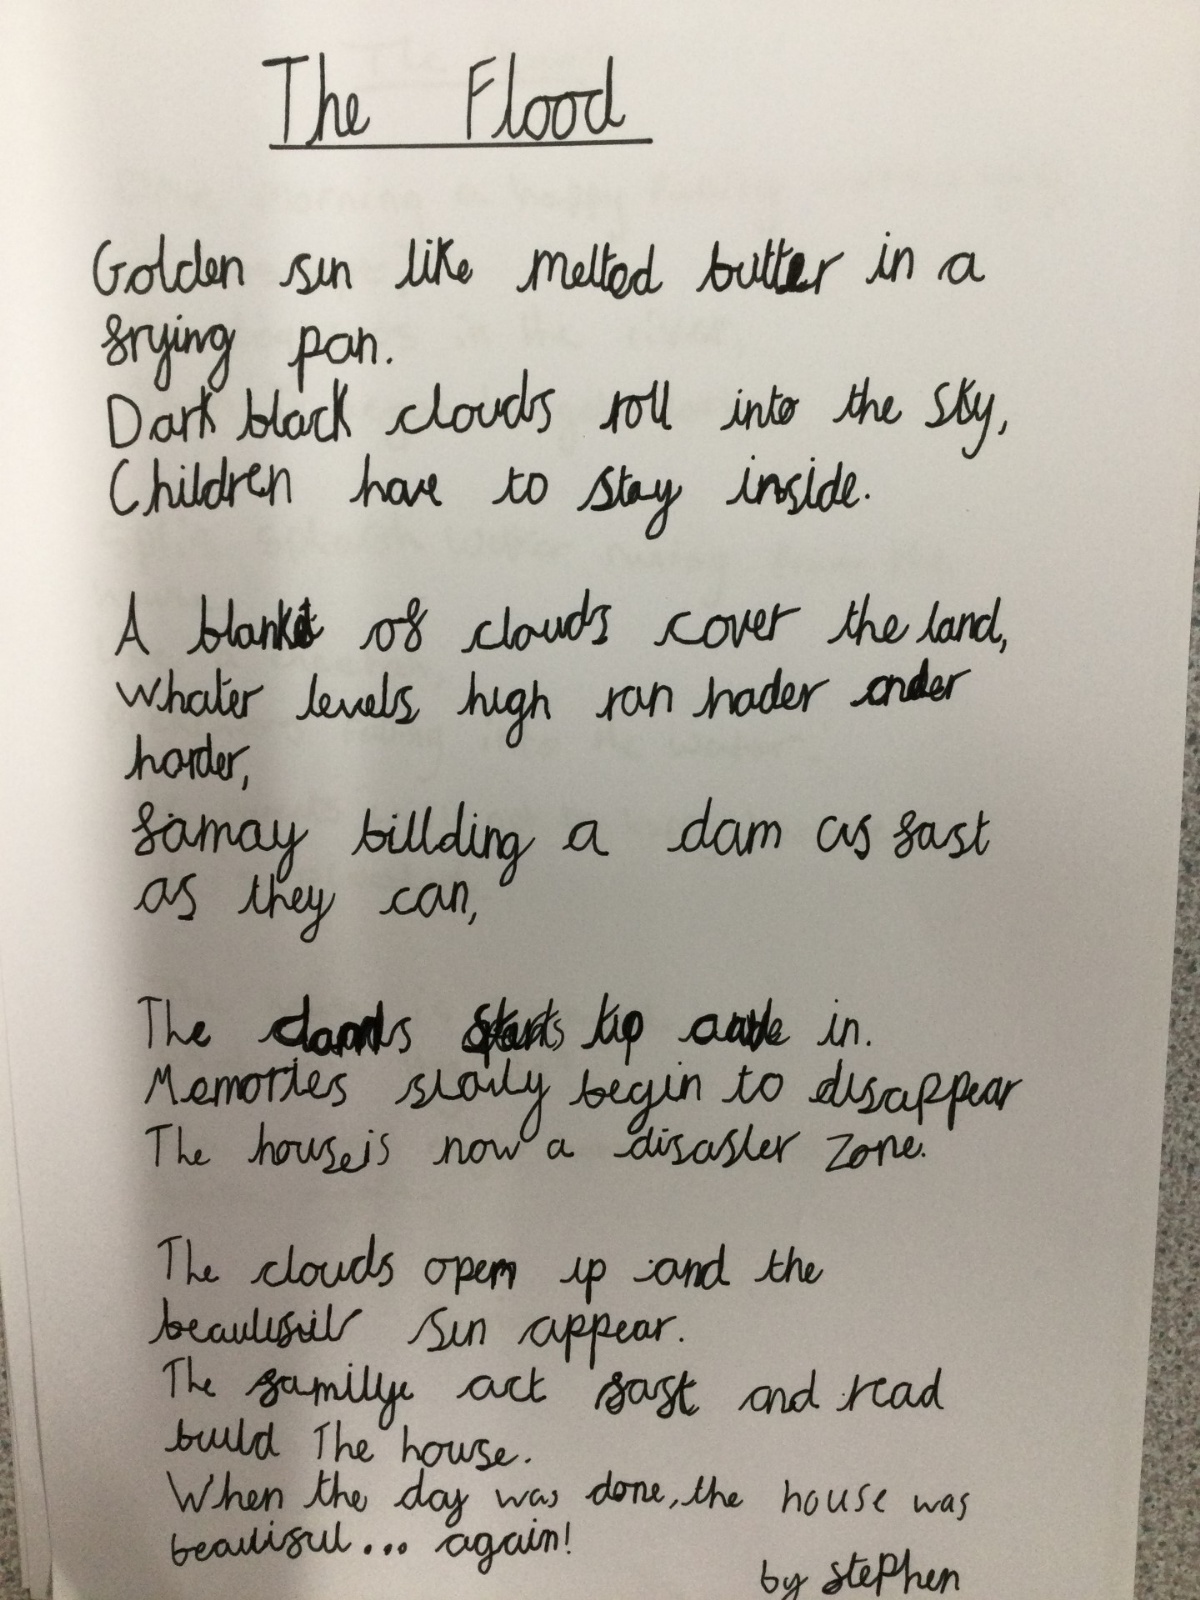 The Flood
Golden sun like melted butter in a
frying pan.
Dark black clouds roll into the sky,
Children have to stay inside.
A blanket of clouds cover the land,
whater levels high ran hader ander
harder,
famay billding a dam as fast
as they can,
The in.
Memories slowly begin to disappear
The house is now a disaster zone.
The clouds open up and the
beautifull sun appear.
The familye act fast and read
build The house.
When the day was done, the house was
beautiful... again!
by stephen